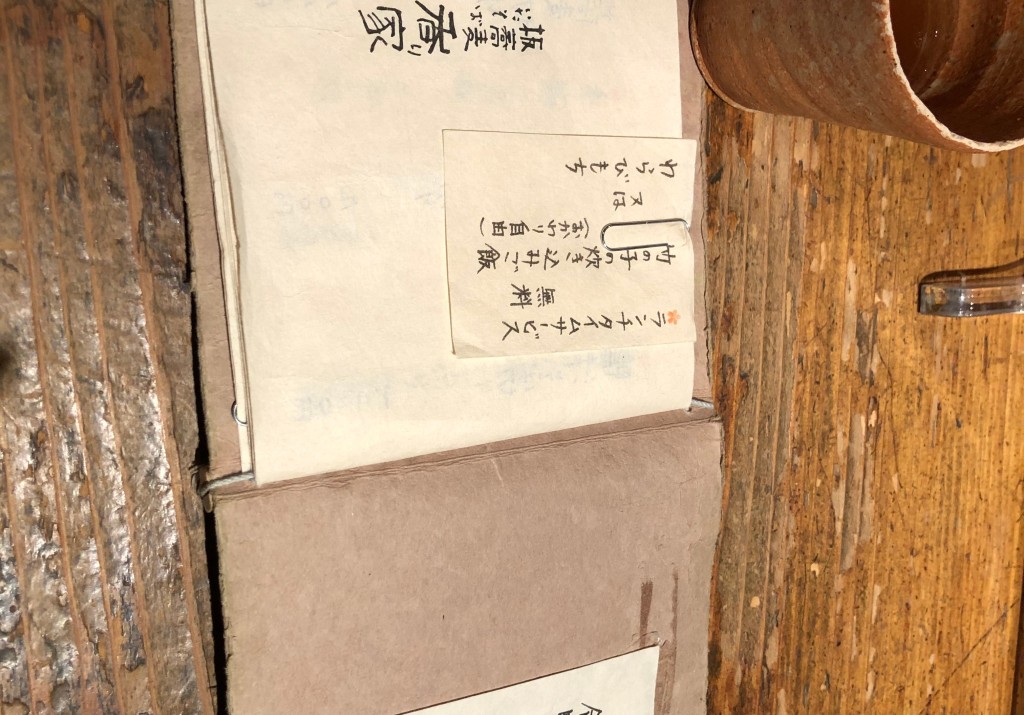 ランチタイムサービス
無料
竹の子の炊き込みご飯
（おかわり自由）
又は
わらびもち
板蕎麦
香り家